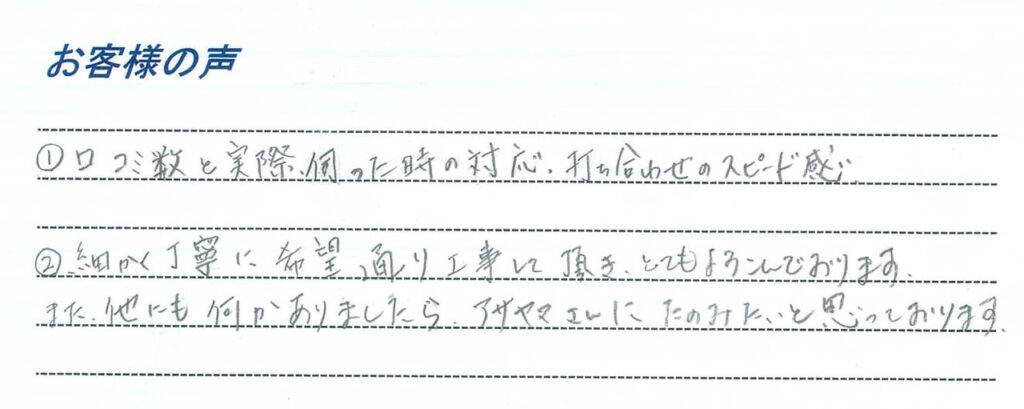 お客様の声
①口コミ数と実際、伺った時の対応、打ち合わせのスピード感
②細かく丁寧に希望通り工事して頂き、とてもよろこんでおります。
また、他にも何かありましたら、アサヤマさんにたのみたいと思っております。